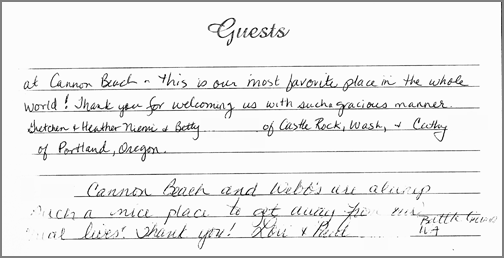 Guests
at Cannon Beach - this is our most favorite place in the whole
world! Thank you for welcoming us with such a gracious manner.
Gretchen & Heather Niemi & Betty of Castle Rock, Wash, & Cathy
of Portland, Oregon.
Cannon Beach and Webb's are always
such a nice place to get away from our
lives! Thank you! Lori &
Battle
WA